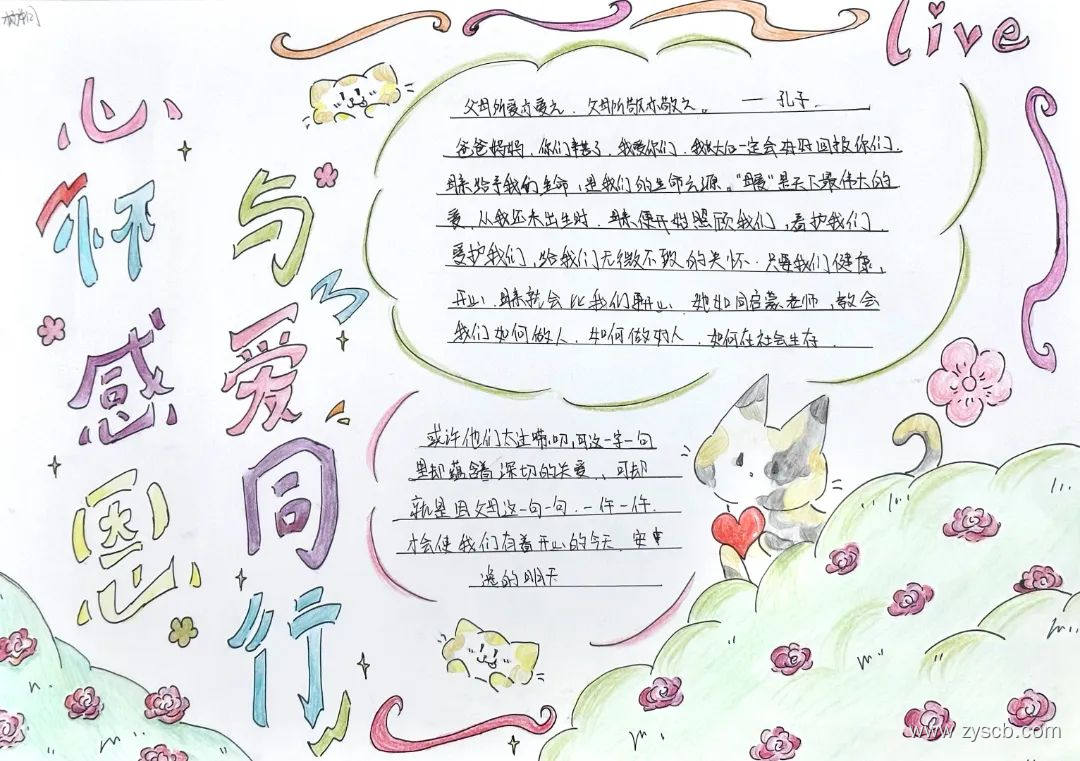 live
心怀感恩
与爱同行
父母所爱亦爱之,父母所敬亦敬之。 — 孔子.
爸爸妈妈,你们辛苦了,我爱你们,我长大后一定会好好回报你们.
母亲给予我们生命,是我们的生命之源。"母爱"是天下最伟大的
爱,从我还未出生时,母亲便开始照顾我们,看护我们,
爱护我们,给我们无微不致的关怀.只要我们健康,
开心,母亲就会比我们更开心,她如同启蒙老师,教会
我们如何做人,如何做好人,如何在社会生存.
或许他们太过唠叨,可这一字一句
里却蕴含着深切的关爱,可却
就是因父母这一句一句.一件一件.
才会使我们有着开心的今天,安
逸的明天
www.zyscb.com